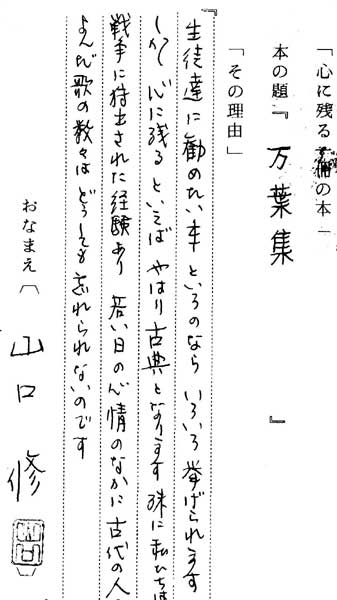 「心に残る の本」
本の題『万葉集』
「その理由」
生徒達に勧めたい本というのなら いろいろ挙げられます
しかし 心に残る といえば やはり古典となります 殊に私たちは
戦争に狩出された経験あり 若い日の心情のなかに古代の人
よんだ歌の数々は どうしても忘れられないのです
おなまえ〔 山口 修